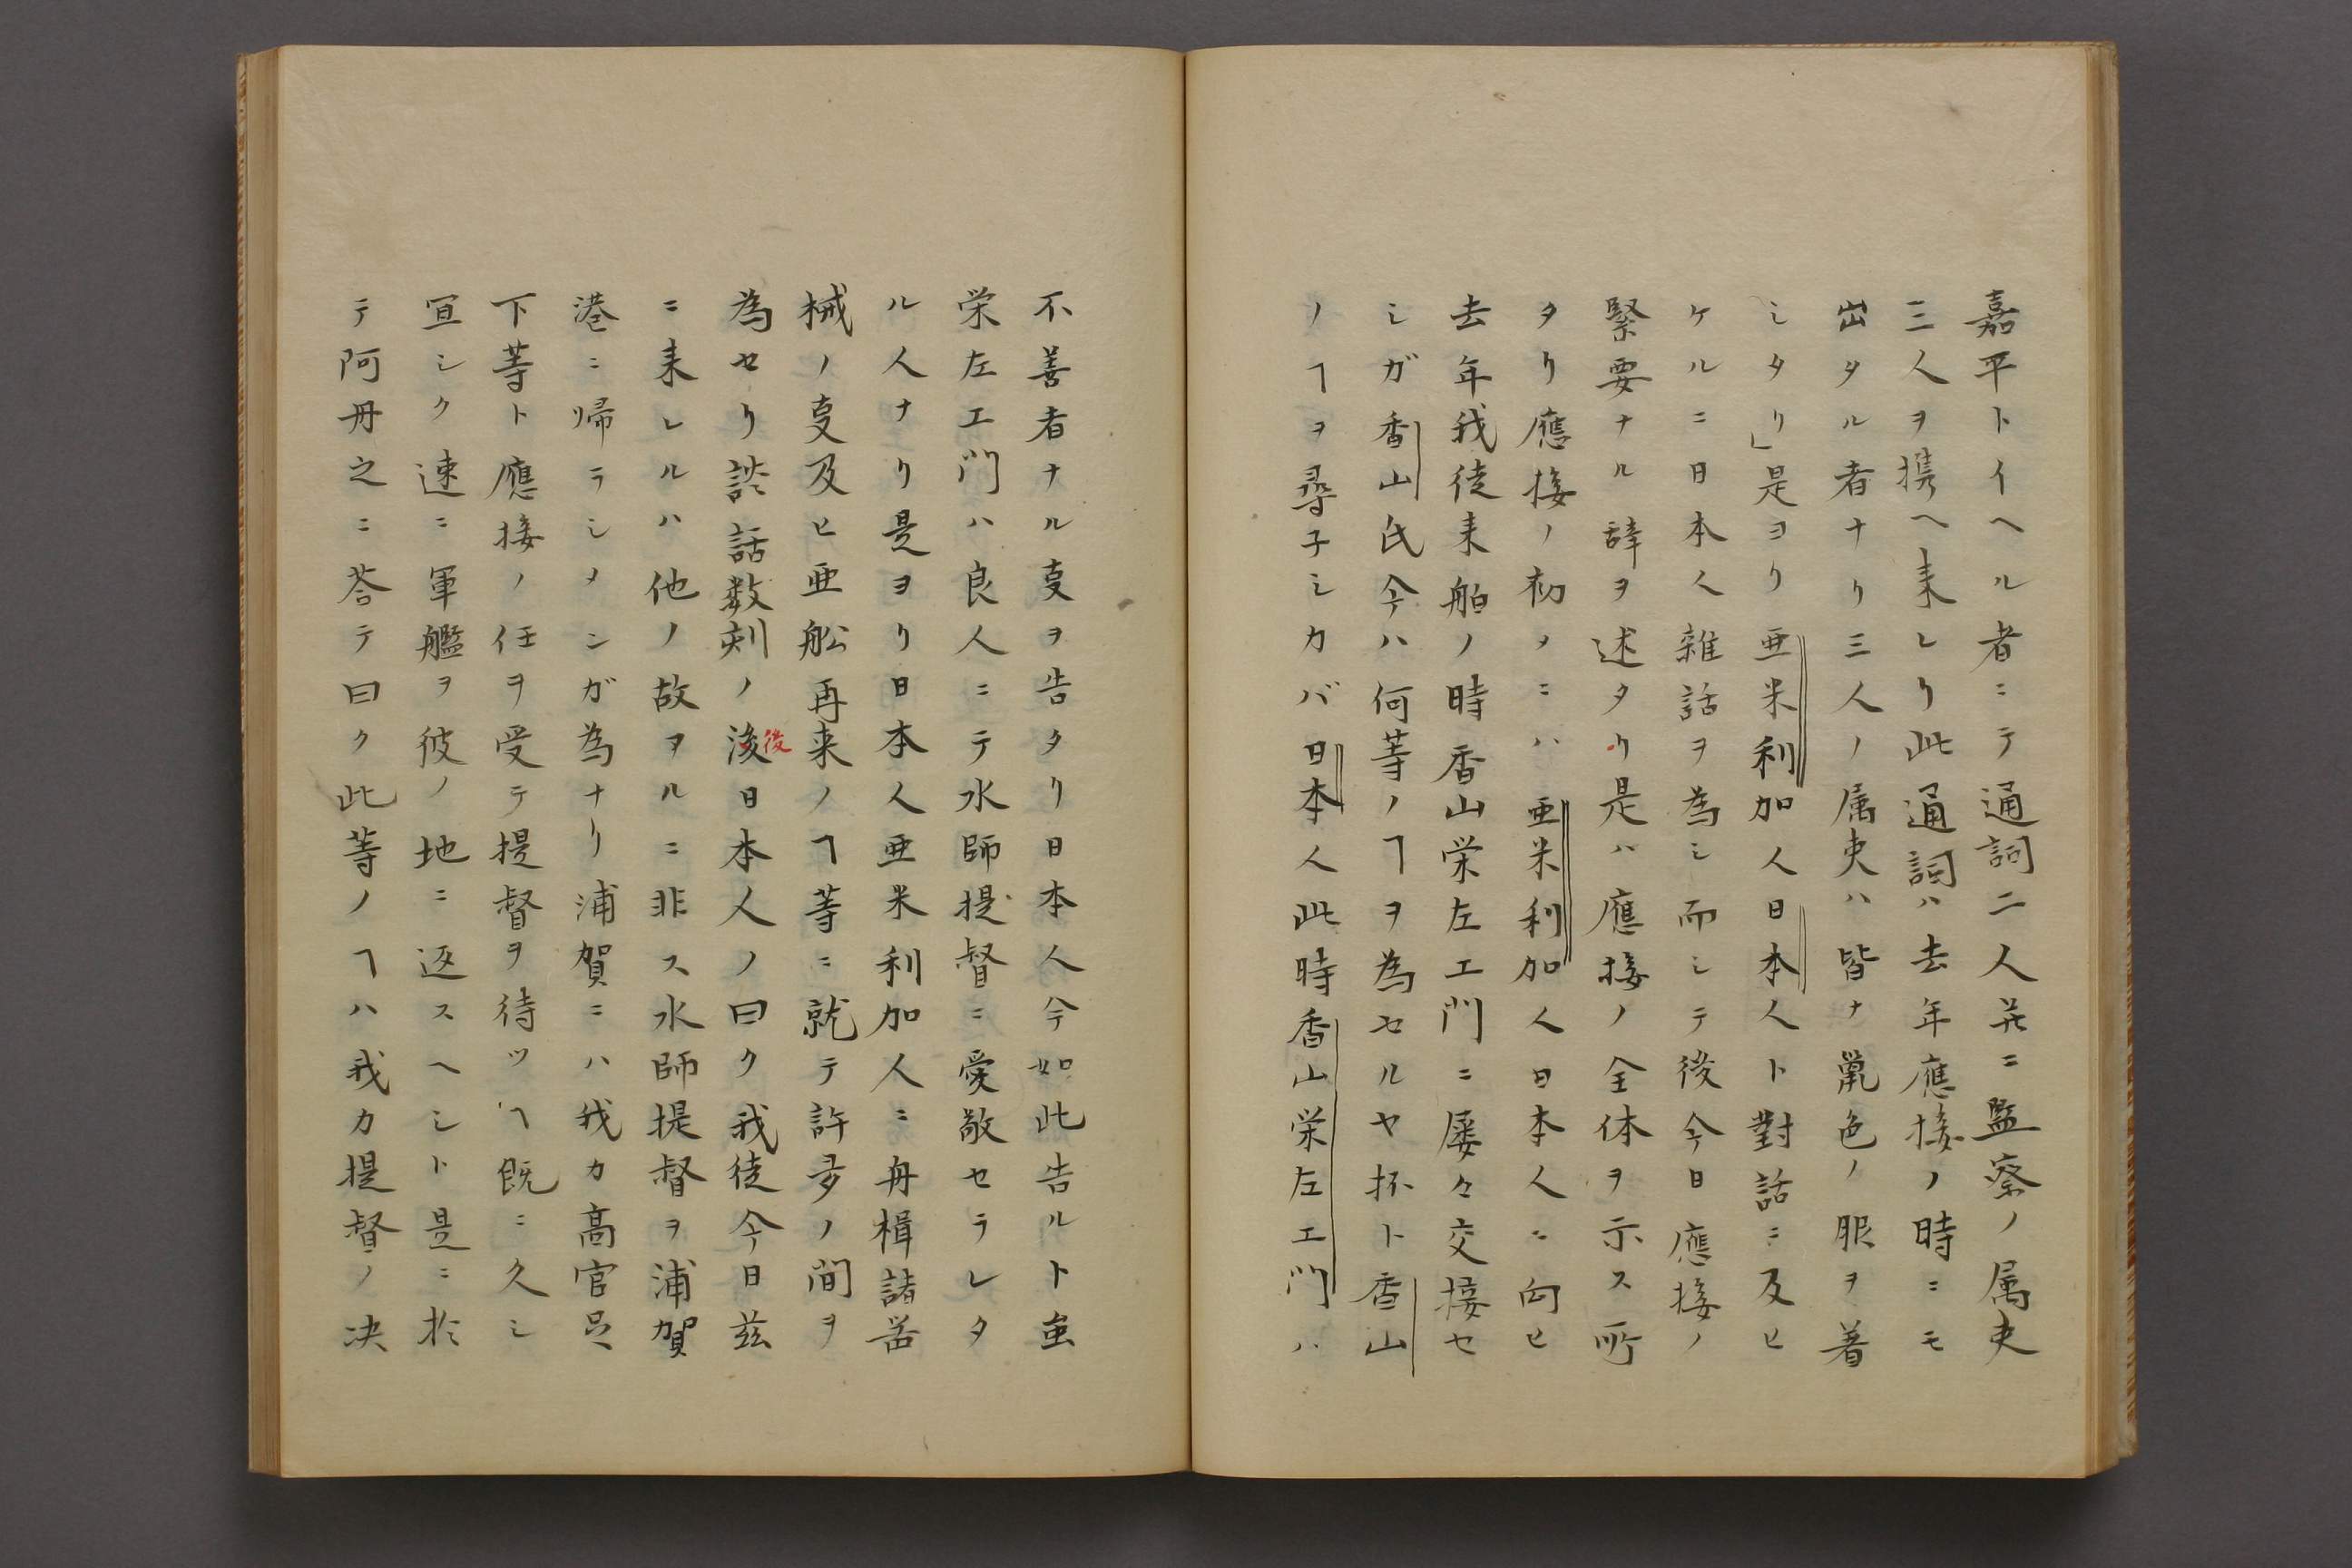 嘉平トイヘル者ニテ通詞二人并ニ監察ノ属吏
三人ヲ携ヘ来レリ此通詞ハ去年應接ノ時ニモ
出タル者ナリ三人ノ属吏ハ皆ナ鼠色ノ服ヲ着
シタリ」是ヨリ亜米利加人日本人ト對話ニ及ヒ
ケルニ日本人雑話ヲ為シ而シテ後今日應接ノ
緊要ナル辞ヲ述タリ是ハ應接ノ全体ヲ示ス所
タリ應接ノ初メニハ亜米利加人日本人ニ向ヒ
去年我徒来舶ノ時香山栄左エ門ニ屡々交接セ
シガ香山氏今ハ何等ノヿヲ為セルヤ抔ト香山
ノヿヲ尋子シカバ日本人此時香山栄左エ門ハ
不善者ナル叓ヲ告タリ日本人今如此告ルト虽
栄左エ門ハ良人ニテ水師提督ニ愛敬セラレタ
ル人ナリ是ヨリ日本人亜米利加人ニ舟楫諸器
械ノ叓及ヒ亜舩再来ノヿ等ニ就テ許多ノ間ヲ
為セリ談話数刻ノ後日本人ノ曰ク我徒今日茲
後
ニ来レルハ他ノ故アルニ非ス水師提督ヲ浦賀
港ニ帰ラシメンガ為ナリ浦賀ニハ我カ高官呂
下等ト應接ノ任ヲ受テ提督ヲ待ツヿ既ニ久シ
宜シク速ニ軍艦ヲ彼ノ地ニ返スヘシト是ニ於
テ阿丹之ニ荅テ曰ク此等ノヿハ我カ提督ノ决